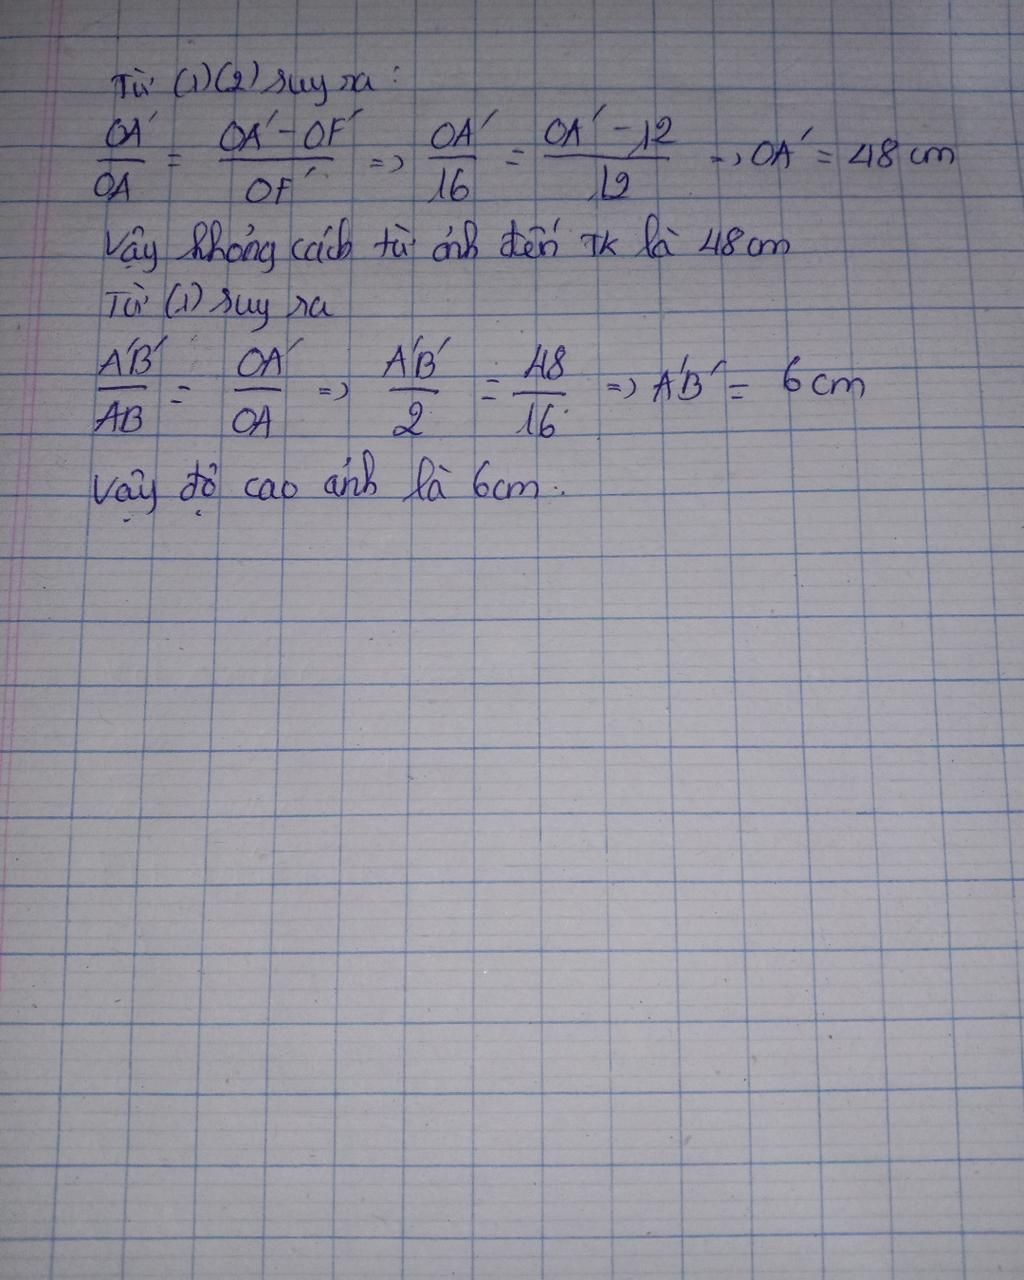 Từ (1)(2) suy ra:
OA'/OA = (OA' - OF')/OF' => OA'/16 = (OA' - 12)/12 => OA' = 48 cm
Vậy khoảng cách từ ảnh đến TK là 48 cm
Từ (1) suy ra
A'B'/AB = OA'/OA => A'B'/2 = 48/16 => A'B' = 6 cm
Vậy độ cao ảnh là 6cm.